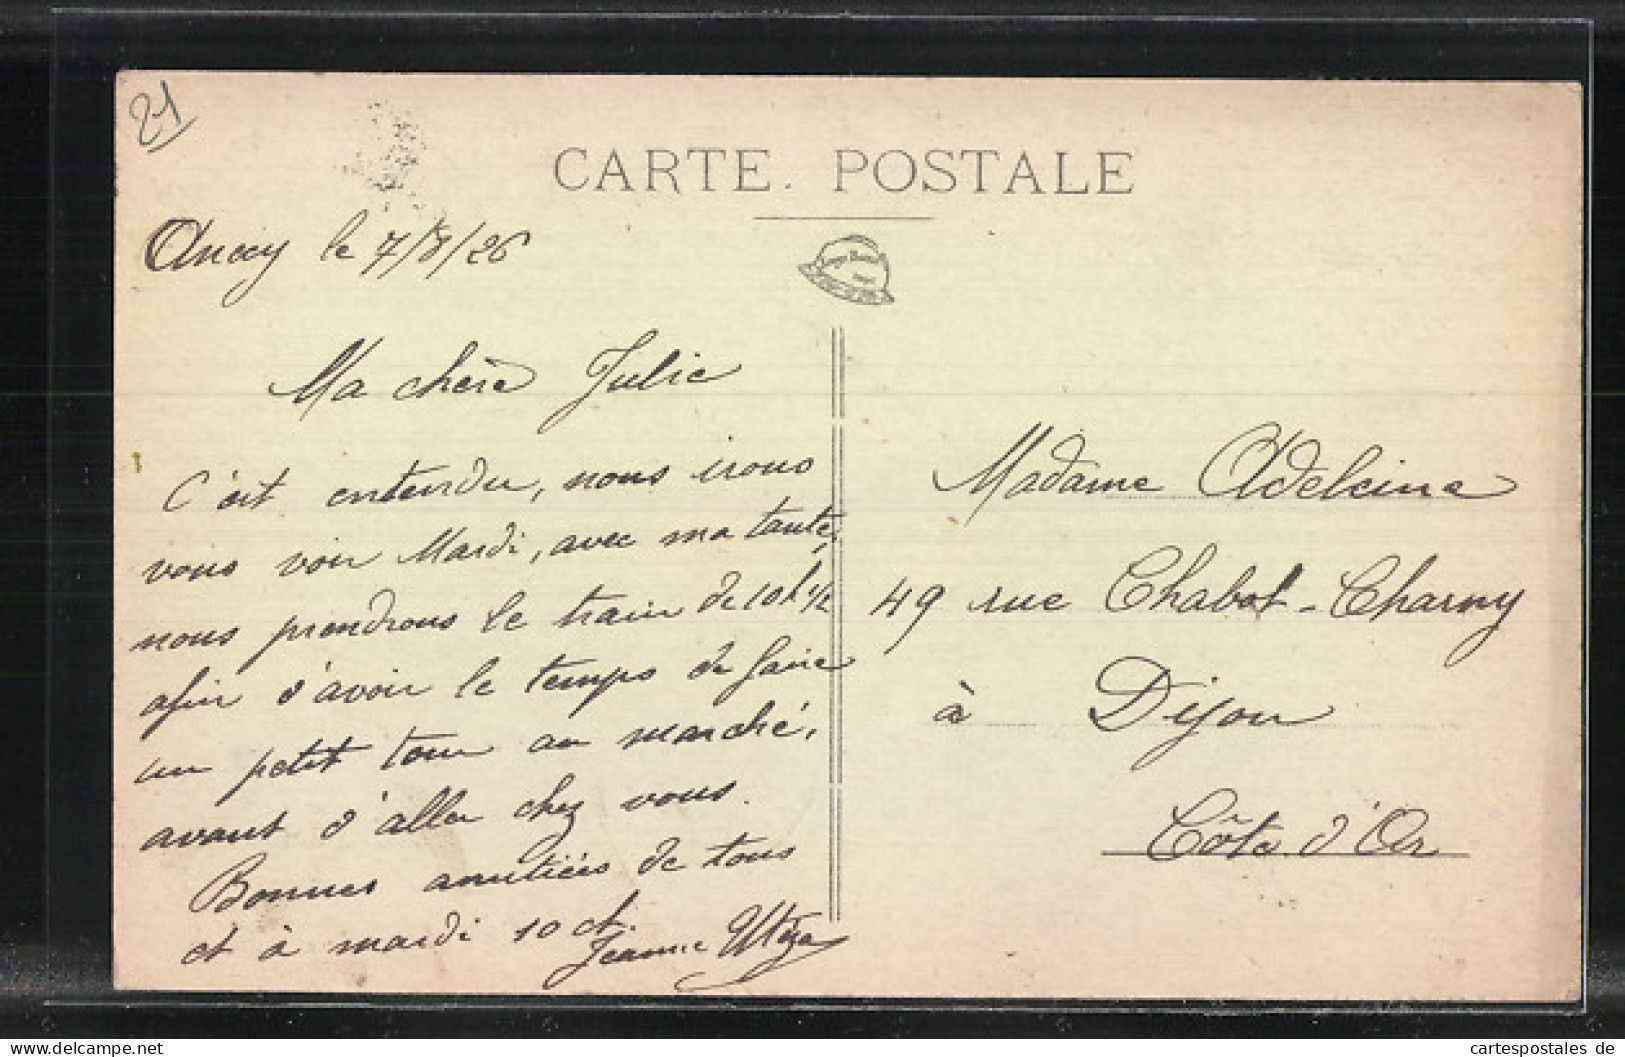 21
CARTE. POSTALE
Ancey le 7/8/26
Ma chère Julie
C'est entendu, nous irons
vous voir Mardi, avec ma tante,
nous prendrons le train de 10h 1/2
afin d'avoir le temps de faire
un petit tour au marché,
avant d'aller chez vous.
Bonnes amitiés de tous
et à mardi 10 ct.
Jeanne
Madame Adeleine
49 rue Chabot-Charny
à Dijon
Côte d'Or
cartespostales de